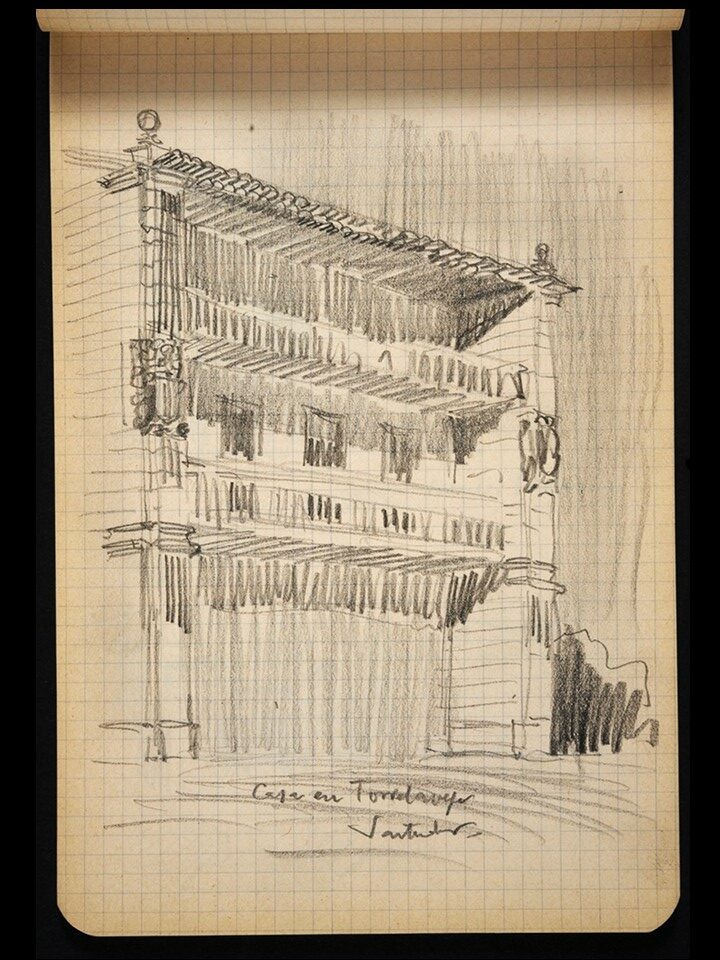 Casa en Torrelavega
Santander